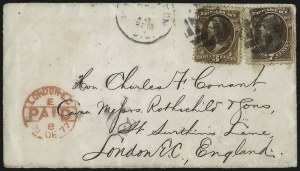 LONDON
E
PAID
8
DE 77
Hon Charles F. Conant
Care Messrs. Rothschild & Sons
St. Swithins Lane,
London E.C., England.